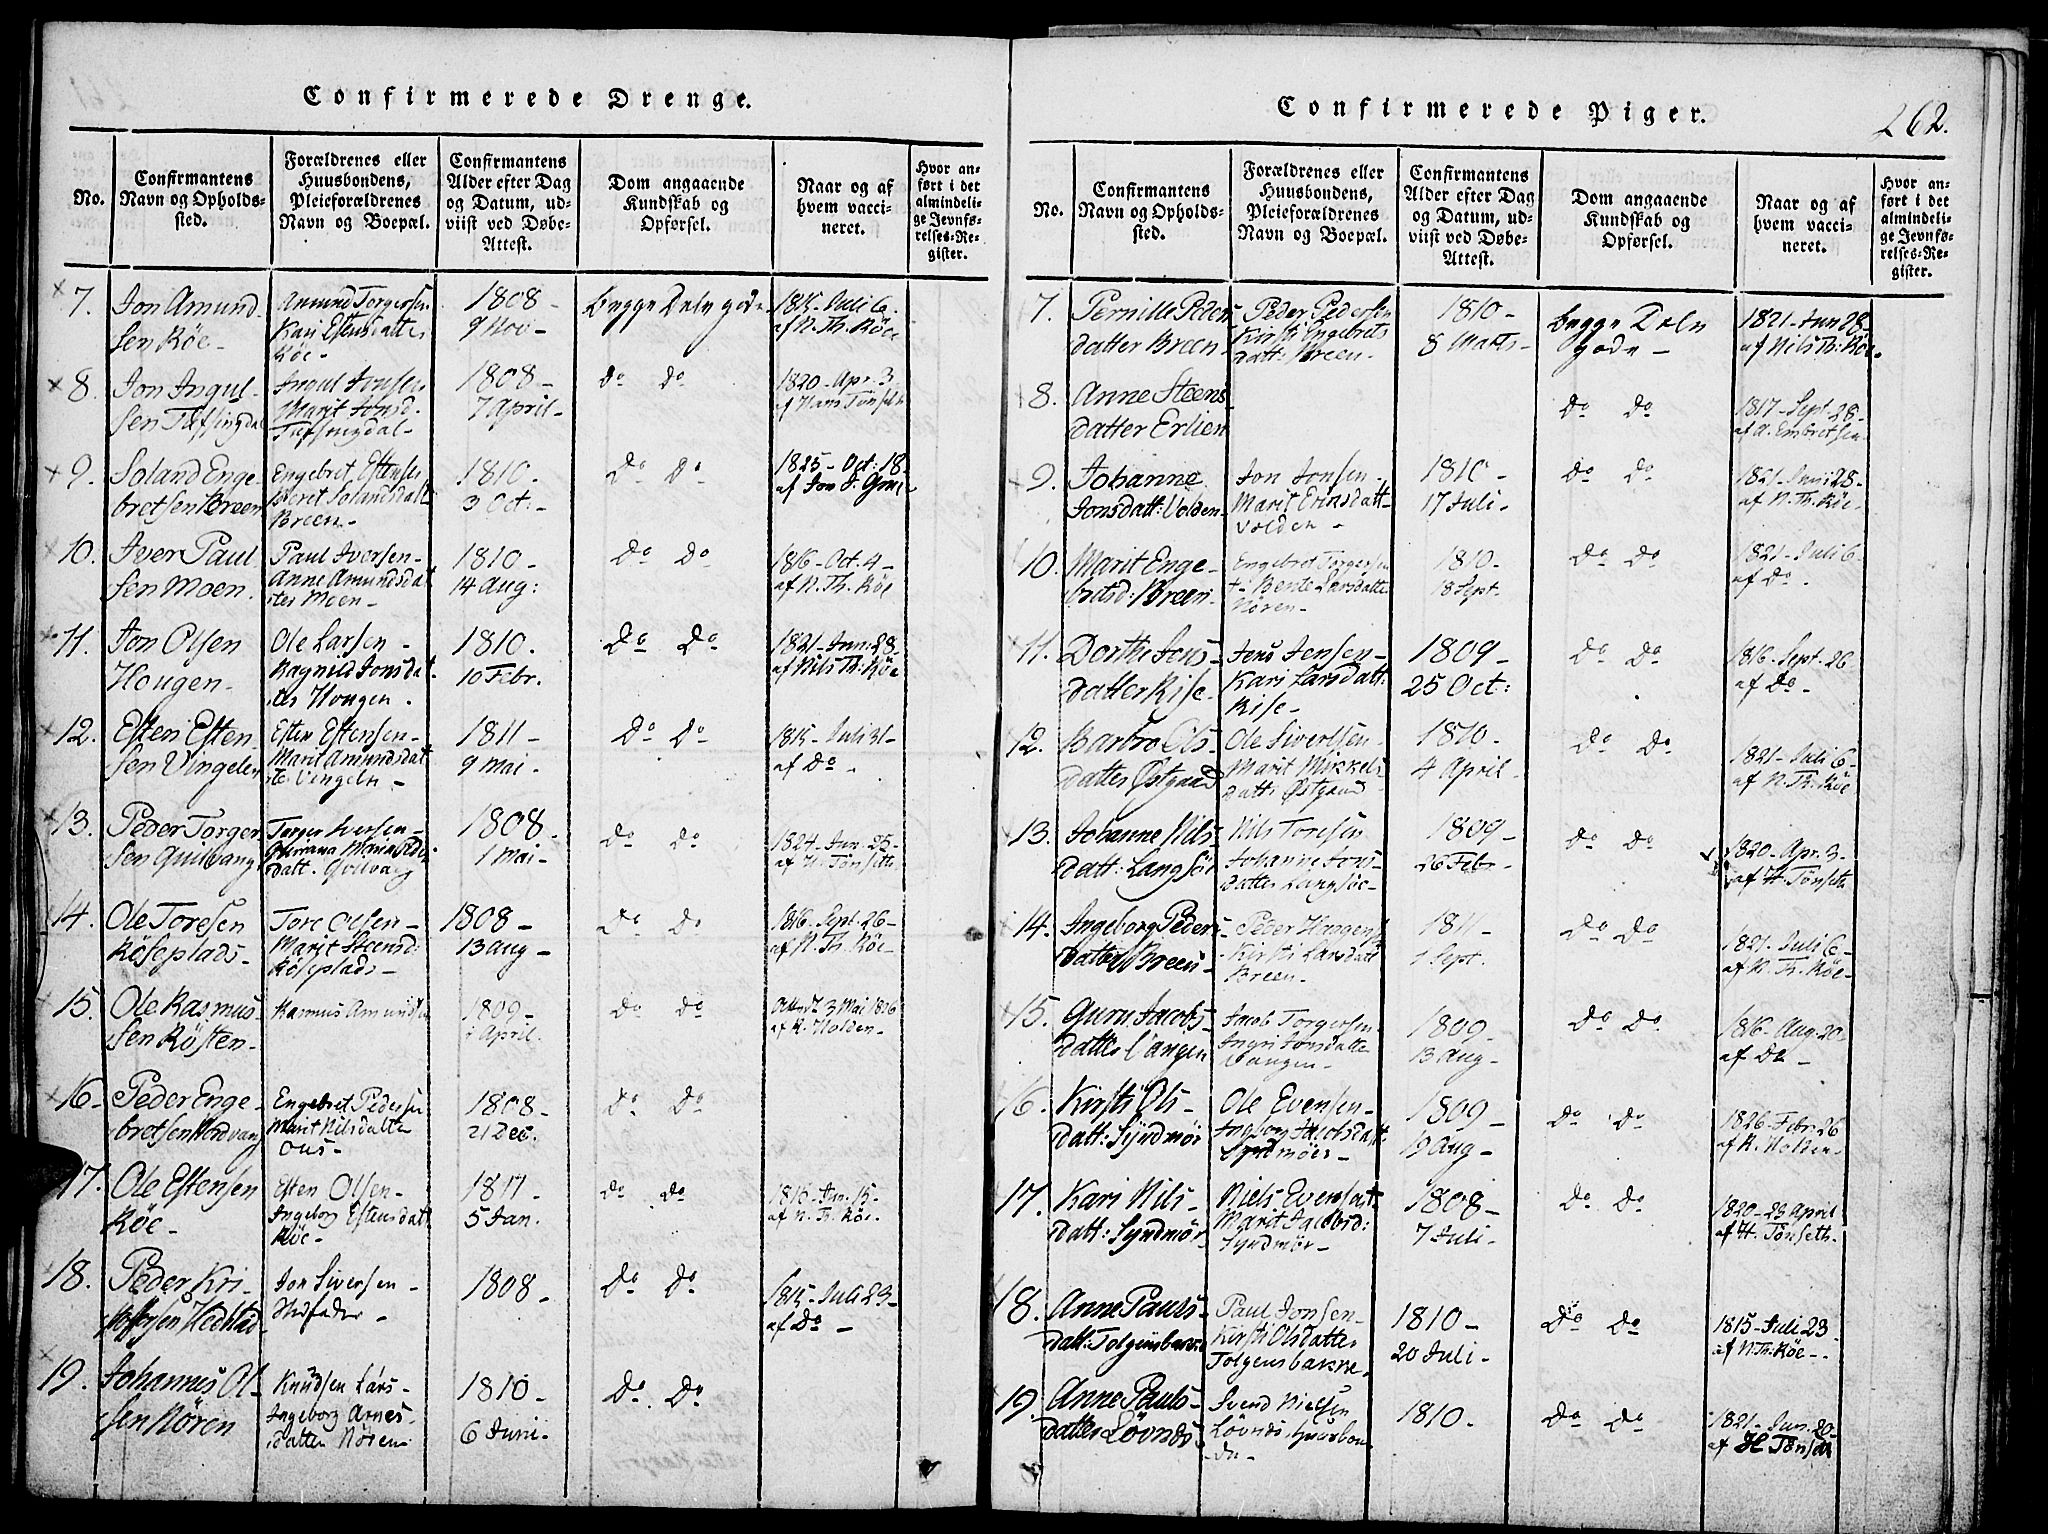 Confirmerede Drenge.
No.
Confirmantens
Navn og Opholds-
sted.
Forældrenes eller
Huusbondens,
Pleieforældrenes
Navn og Boepæl.
Confirmantens
Alder efter Dag
og Datum, ud-
viist ved Døbe-
Attest.
Dom angaaende
Kundskab og
Opførsel.
Naar og af
hvem vacci-
neret.
Hvor an-
ført i det
almindeli-
ge Jevnfø-
relses-Re-
gister.
7.
Jon Amund-
sen Röe-
Amund Torgersen
Kari Estensdatter
Röe-
1808-
9 Nov-
begge Dele gode
1815-Juli 6-
af N. Th. Röe
8.
Jon Ingul-
sen Tufsingdal
Ingul Jonsen
Marit Jonsd.
Tufsingdal-
1808-
7 April-
Do Do
1820-Apr. 3-
af Hans Tönseth
9.
Soland Enge-
bretsen Breen
Engebret Estensen
Beret Solandsdatt
Breen-
1810-
3 Oct:-
Do Do
1825-Oct: 18-
af Jon
10.
Iver Paul-
sen Moen.
Paul Iversen-
Anne Amundsdat-
ter Moen-
1810-
14 Aug:
Do Do
1816-Oct. 4-
af N. Th. Röe
11.
Jon Olsen
Hougen-
Ole Larsen-
Ragnild Jonsdat-
ter Hougen.
1810.
10 Febr.
Do Do
1821-Jun: 28.
af Nils Th: Röe
12.
Esten Esten-
sen Vingelen
Esten Estensen-
Marit Amundsdat-
ter Vingeln-
1811-
9 Mai-
Do Do
1815-Juli 31-
af Do-
13.
Peder Torger-
sen Gulvang
Torger Iversen-
Maria
datt.
1808.
1 Mai-
Do Do
1824-Jun-25-
af H. Tönseth
14.
Ole Toresen
Röseplads-
Tore Olsen-
Marit Steensd:
Röseplads-
1808-
13 Aug-
Do Do
1816-Sept. 26-
af N. Th. Röe-
15.
Ole Rasmus-
sen Rösten-
Rasmus Amundsen
1809-
April.
Do Do
3 Mai 1826
af R. Holden-
16-
Peder Enge-
bretsen Nordvang
Engebret Pedersen
Marit Nilsdatter
Ous-
1808-
21 Dec.
Do Do
17.
Ole Estensen
Röe-
Esten Olsen-
Ingeborg Estensdatt
Röe-
1811-
5 Jan.
Do Do
1816-Jun. 15-
af N. Th. Röe.
18.
Peder Kri-
stofersen Hedstad
Jon Siversen-
Stedfader-
1808-
Do Do
1815-Juli 23-
af Do-
19.
Johannes Ol-
sen Nören
Knudsen Lars-
Ingeborg Arnes-
datter Nören
1810-
6 Juni-
Do. Do
Confirmerede Piger.
262.
No.
Confirmantens
Navn og Opholds-
sted.
Forældrenes eller
Huusbondens,
Pleieforældrenes
Navn og Boepæl.
Confirmantens
Alder efter Dag
og Datum, ud-
viist ved Døbe-
Attest.
Dom angaaende
Kundskab og
Opførsel.
Naar og af
hvem vacci-
neret.
Hvor an-
ført i det
almindeli-
ge Jevnfø-
relses-Re-
gister.
7.
Pernille Peders-
datter Breen-
Peder Pedersen
Kirsti Engebrets
datt: Breen-
1810-
8 Marts-
begge Dele
gode-
1821-Jun 28-
af Nils Th: Röe-
8.
Anne Steens-
datter Erlien
Do Do
1817-Sept-28-
af A. Embretsen-
9.
Johanne
Jonsdatt: Volden-
Jon Jonsen-
Marit Eriksdatt-
Volden-
1810-
17 Juli-
Do Do
1821-Juni 28-
af N. Th. Röe-
10.
Marit Enge-
bretsd: Breen-
Engebret Torgersen
+ Bente Larsdatter
Nören-
1810-
18 Sept.
Do Do
1821-Juli 6-
af Do-
11.
Dorthe Jens-
datter Rise-
Jens Jensen-
Kari Larsdatt:
Rise-
1809-
25 Oct:
Do Do
1816-Sept-26-
af Do-
12.
Barbro Ols-
datter Østgaard
Ole Sivertsen-
Marit Mikkels-
datter Østgaard-
1810-
4 April-
Do Do
1821-Juli 6-
af N. Th. Röe
13.
Johanne Nils-
datt: Langsöe
Nils Toresen
Johanne Jons-
datter Langsöe-
1809-
26 Febr-
Do Do
1820-Apr. 3-
af H. Tönseth
14.
Ingeborg Peders-
datter Breen-
Peder Haagensen
Kirsti Larsdatt
Breen-
1811-
1 Sept.
Do Do
1821-Juli 6-
af N. Th. Röe-
15.
Guru Jacobs-
datter Vangen
Jacob Torgersen
Ingri Jonsdatter
Vangen-
1809-
13 Aug-
Do Do
1816-Aug. 20-
af Do-
16.
Kirsti Ols-
datt: Syndmör
Ole Evensen-
Ingborg Jacobsdatt.
Syndmöer-
1809-
19 Aug-
Do Do
1826-Febr. 26
af R. Holden-
17.
Kari Nils-
datt: Syndmör-
Niels
Marit Jacobsd:
Syndmör-
1808-
7 Juli-
Do Do
1820-23 April
af H. Tönseth-
18.
Anne Pauls-
datt: Tolgensbakke
Paul Jonsen-
Kirsti Olsdatter
Tolgensbakke.
1810-
20 Juli-
Do Do
1815-Juli 23-
af N. Th. Röe-
19.
Anne Pauls-
datter Lövnds
Svend Nielsen
Lövnds Huusbon-
de-
1810-
Do Do
1821-Jun. 20-
af H Tönseth